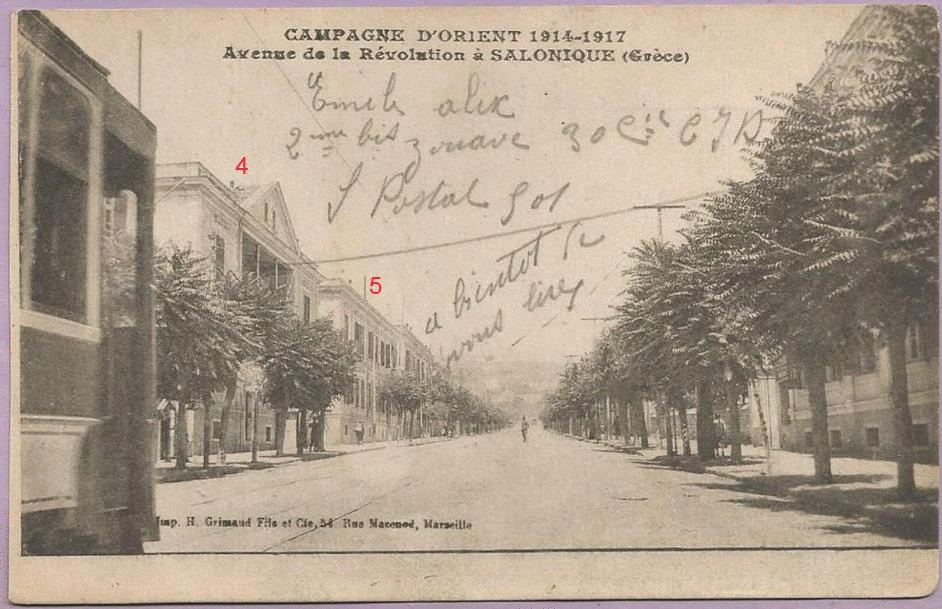 CAMPAGNE D'ORIENT 1914-1917
Avenue de la Révolution à SALONIQUE (Grèce)
Emile alix
2ème bis zouave 30 Cie C I D
S Postal 501
4
5
a bientot de
vous lire
Imp. H. Grimaud Fils et Cie, 54 Rue Mazenod, Marseille